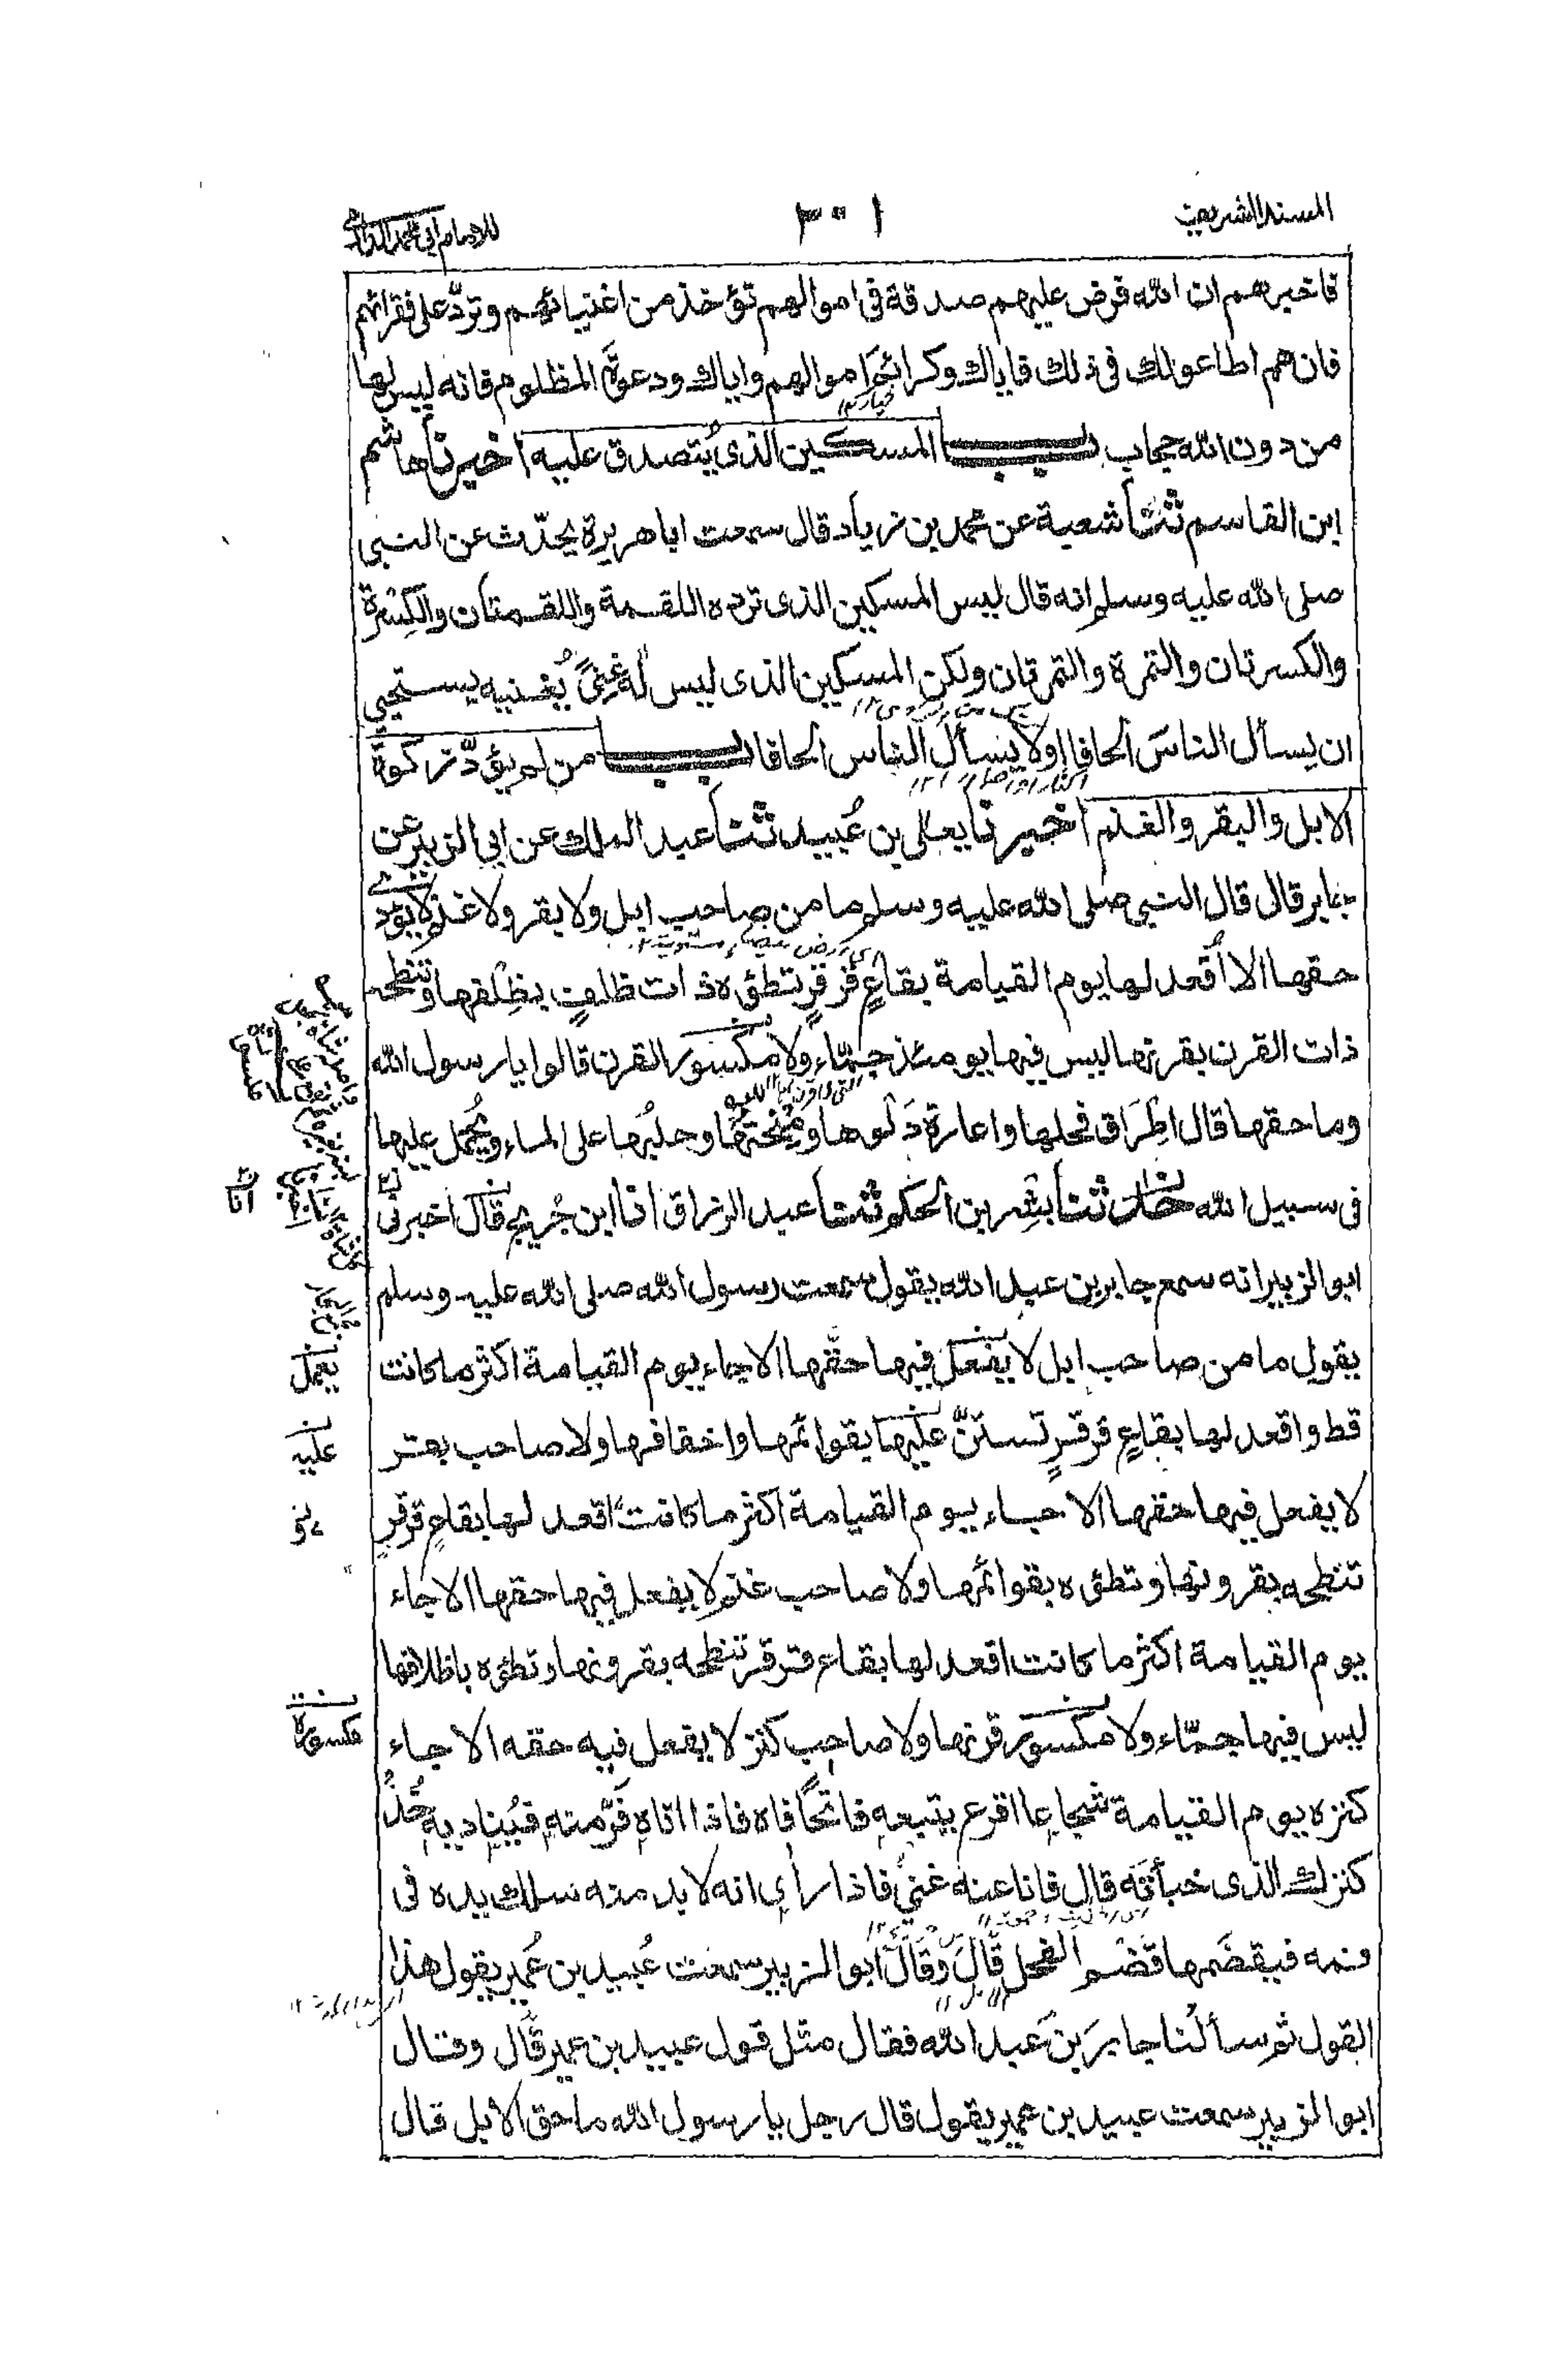 المسند الشريف
٢٠١
للامام ابي محمد الدارمي
فاخبرهم ان الله فرض عليهم صدقة في اموالهم تؤخذ من اغنيائهم وتردّ على فقرائهم
فان هم اطاعوا لك في ذلك فاياك وكرائم اموالهم واياك ودعوة المظلوم فانه ليس لها
من دون الله حجاب باب المسكين الذى يُتصدق عليه اخبرنا هاشم
ابن القاسم ثنا شعبة عن محمد بن زياد قال سمعت ابا هريرة يحدّث عن النبي
صلى الله عليه وسلم انه قال ليس المسكين الذى ترده اللقمة واللقمتان والكِسْرة
والكسرتان والتمرة والتمرتان ولكن المسكين الذى ليس له غِنًى يُغنيه يستحيي
ان يسأل الناسَ الحافا او لا يسأل الناس الحافا باب من لم يؤدّ زكوة
الابل والبقر والغنم اخبرنا يعلى بن عُبيد ثنا عبد الملك عن ابي الزبير عن
جابر قال قال النبي صلى الله عليه وسلم ما من صاحب ابل ولا بقر ولا غنم لا يؤد
حقها الا اُقعد لها يوم القيامة بقاعٍ قَرْقَرٍ تطؤه ذات ظلفٍ بظِلْفها وتنطحه
ذات القرن بقرنها ليس فيها يومئذ جمّاء ولا مكسور القرن قالوا يا رسول الله
وما حقها قال اطِرَاق فحلها واعارة دَلوها ومِنْحتها وحلبُها على الماء ويُحمل عليها
في سبيل الله حدثنا بِشر بن الحكم ثنا عبد الرزاق انا ابن جُريج قال اخبرني
ابو الزبير انه سمع جابر بن عبد الله يقول سمعت رسول الله صلى الله عليه وسلم
يقول ما من صاحب ابل لا يفعل فيها حقها الا جاء يوم القيامة اكثر ما كانت
يعمل
قط واقعد لها بقاعٍ قرقرٍ تستنّ عليها بقوائمها واخفافها ولا صاحب بقر
عليه
لا يفعل فيها حقها الا جاء يوم القيامة اكثر ما كانت اقعد لها بقاعٍ قرقرٍ
تنطحه بقرونها وتطؤه بقوائمها ولا صاحب غنم لا يفعل فيها حقها الا جاء
يوم القيامة اكثر ما كانت اقعد لها بقاع قرقر تنطحه بقرونها وتطؤه باظلافها
ليس فيها جمّاء ولا مكسور قرنها ولا صاحب كنز لا يفعل فيه حقه الا جاء
مكسورة
كنزه يوم القيامة شجاعا اقرع يتبعه فاتحًا فاه فاذا اتاه فَرَّ منه فيُناديه خُذْ
كنزك الذى خبأته قال فانا عنه غنيٌّ فاذا رأى انه لا بد منه سلك يده في
فمه فيقضَمها قَضْم الفحل قال وقال ابو الزبير سمعت عُبيد بن عُمير يقول هذا
القول ثم سألنا جابرَ بنَ عبد الله فقال مثل قول عبيد بن عمير قال وقال
ابو الزبير سمعت عبيد بن عمير يقول قال رجل يا رسول الله ما حق الابل قال